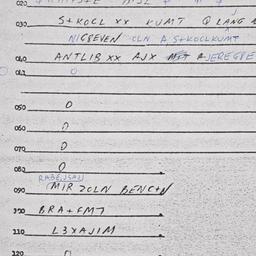 020
030 S+KOCL XX KUMT Q LANG
NIGREVEN CLN A S+KOCLKUMT
040 ANTLIB XX AJX AJEREGRE
041 0
050 0
060 0
070 0
080 0
RABEJSAJ
090 MIR ZOLN BENC+N
100 BRA+FMT
110 L3XAJIM
120 0